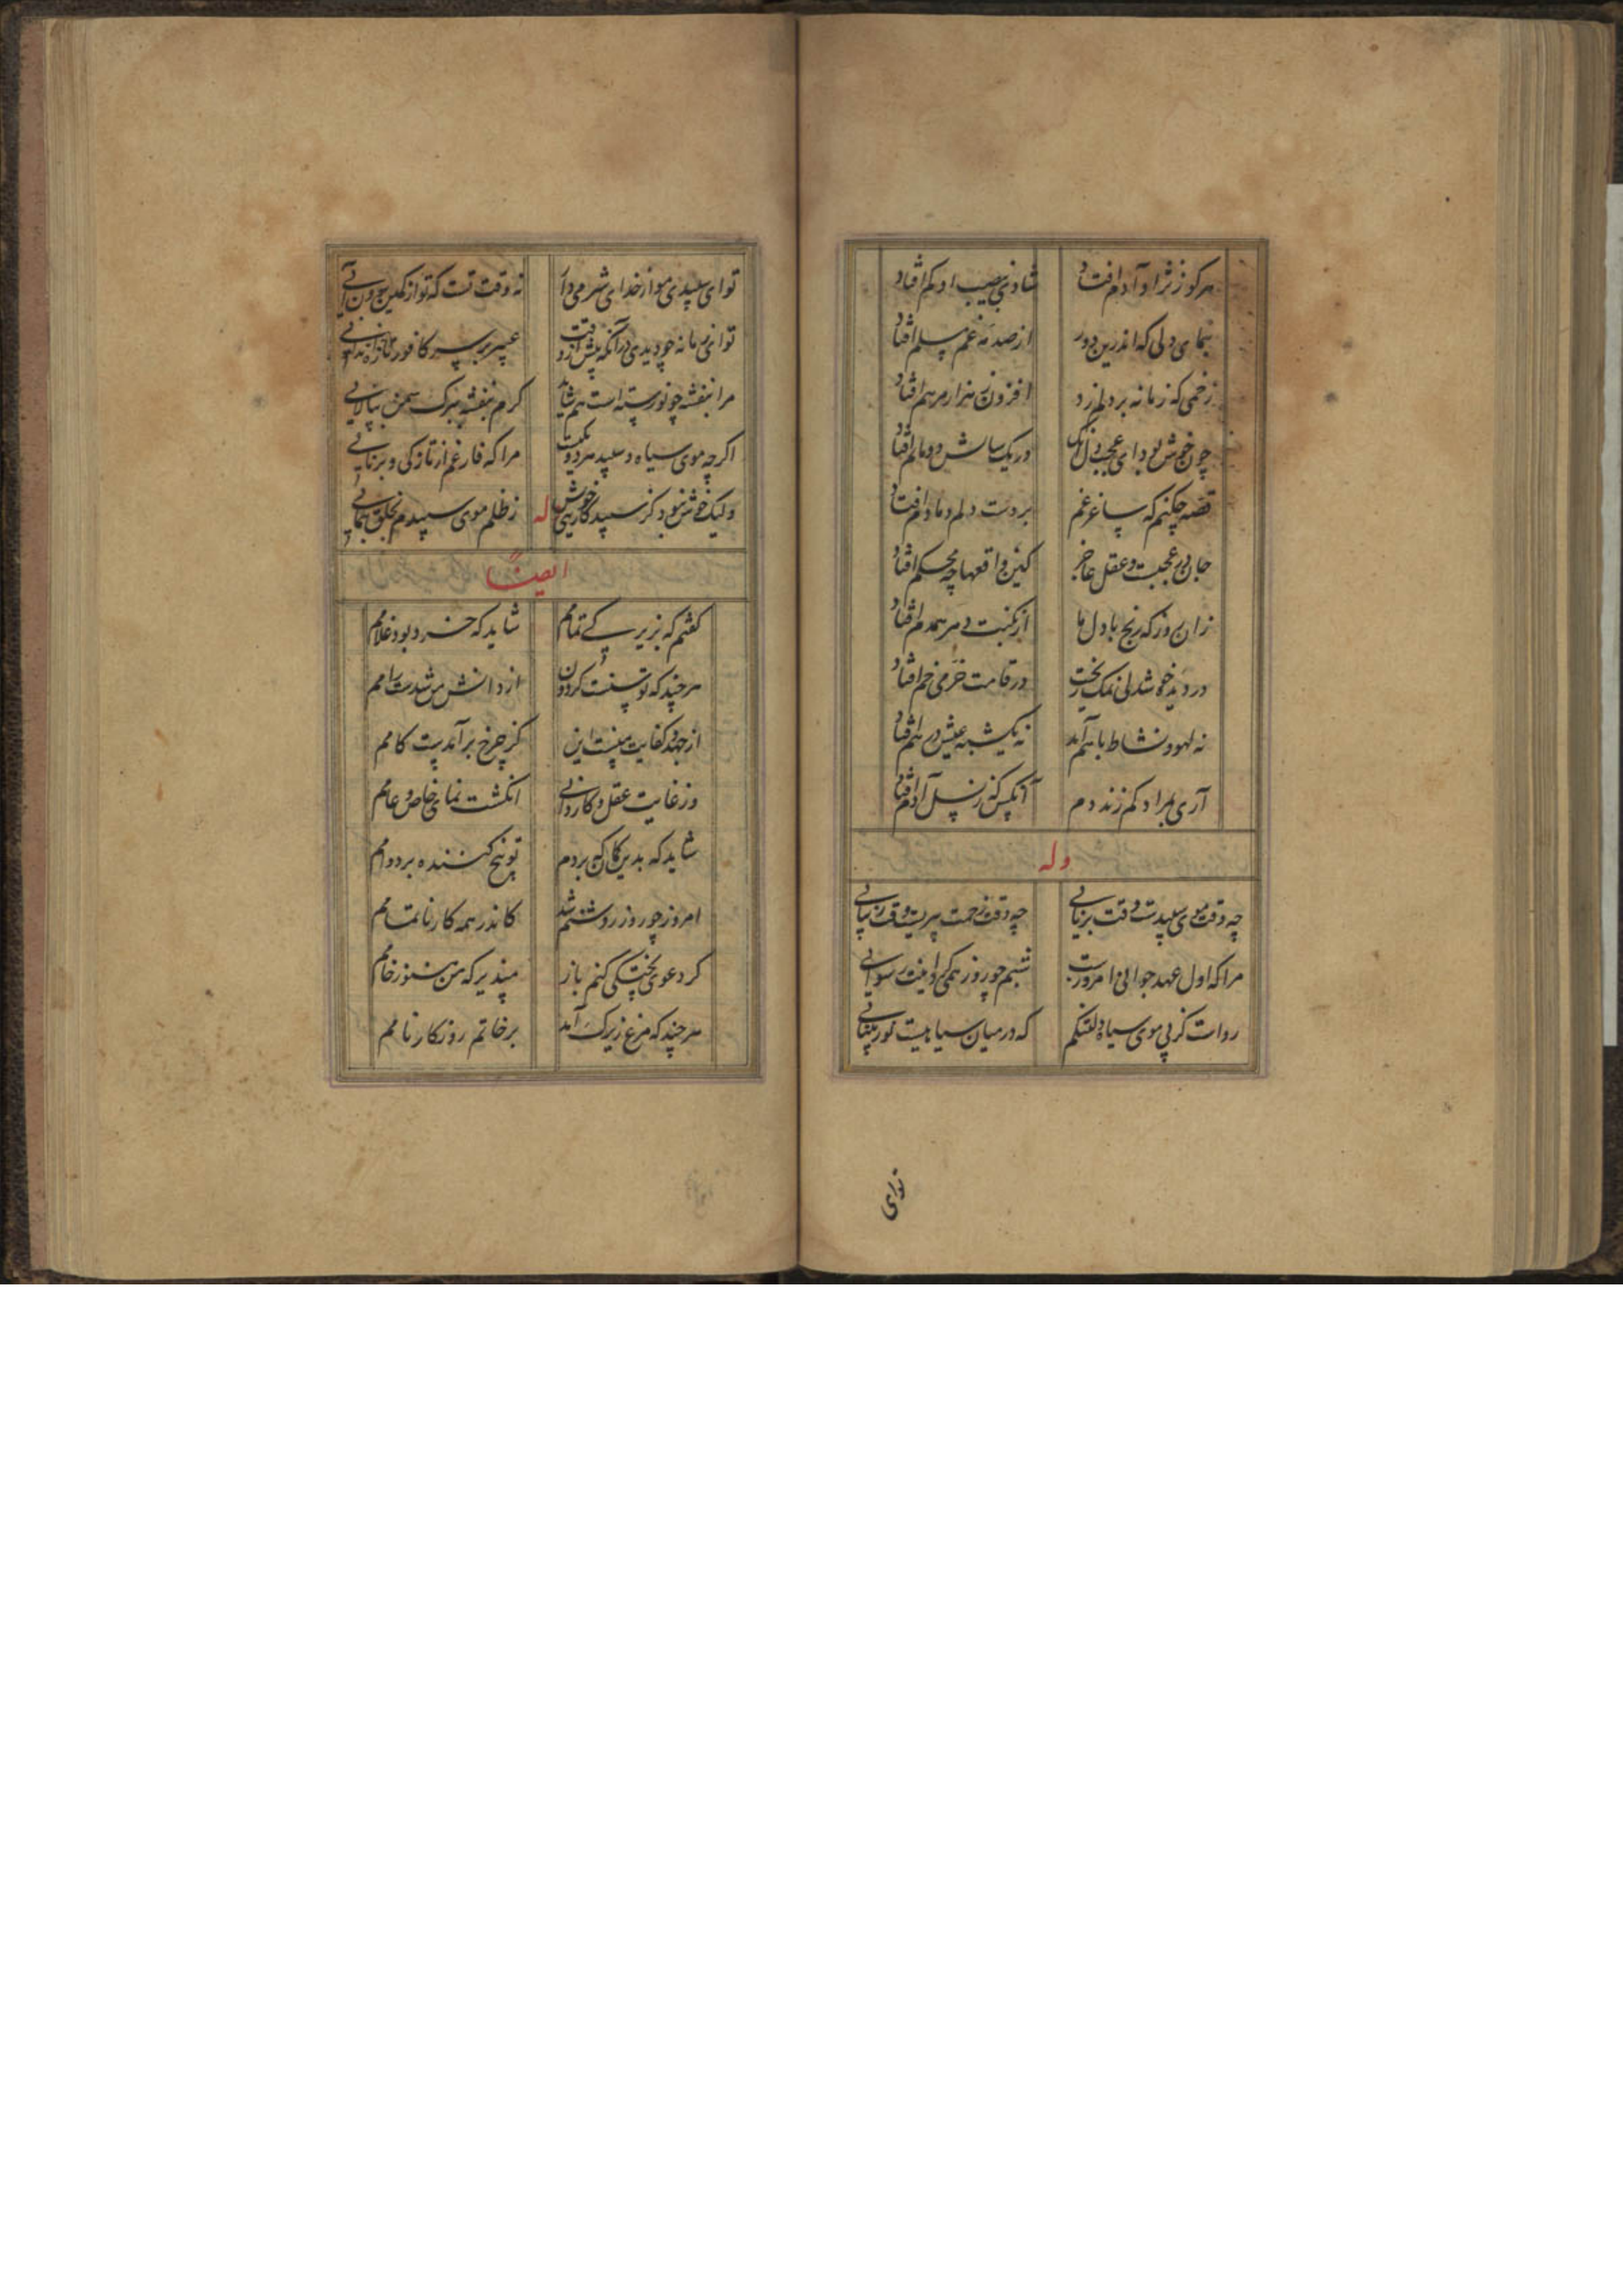 هرکو ز نژاد آدم افتاد شادی نصیب او کم افتاد
بنمای دلی که اندرین دور از صدمه غم مسلم افتاد
زخمی که زمانه بر دلم زد افزون ز هزار مرهم افتاد
چون خوش بود ای عجب دلی در یک سالش دو ماتم افتاد
قصه چکنم که ساغر غم بر دست دلم دمادم افتاد
جانی عجبست و عقل عاجز کین واقعها چه محکم افتاد
زان روز که رنج با دل ما از نکبت دهر همدم افتاد
در دیده خوشدلی نمک ریخت در قامت خرمی خم افتاد
نه لهو و نشاط باهم آمد نه یکشبه عیش درهم افتاد
آری بمراد کم زند دم آنکس که ز نسل آدم افتاد
وله
چه وقت موی سپیدست وقت برنایی چه وقت زحمت پیریست وقت زیبایی
مرا که اول عهد جوانی امروزست شبم چو روز همی
رواست کز پی موی سیاه دلتنگم که در میان سیاهیست نور بینایی
توای
تو ای سپیدی مو از خدای شرمی دار نه وقت تست که تو از کمین برون آیی
تو این زمانه چو دیدی در آنکه پیش از وقت عبیر بر سر کافور
مرا بنفشه چو نورسته است هم شاید کرم بنفشه ببرک سمن بیالایی
اکرچه موی سیاه و سپید هر دو یکیست مرا که فارغم از تازکی و برنایی
ولیک خوش نبود کز سپید کاری خویش ز ظلم موی سپیدم بخلق بنمایی
له
ایضاً
کفتم که بزیرکی تمامم شاید که خرد بود غلامم
هرچند که توسنست کردون از دانش من شدست رامم
از جهد و کفایت منست این کز چرخ برآمدست کامم
وز غایت عقل و کاردانی انکشت نمای خاص و عامم
شاید که بدین کمان که بردم توبیخ کننده بر دوامم
امروز چو روز روشنم شد کاندر همه کار ناتمامم
کر دعوی پختکی کنم باز مپذیر که من هنوز خامم
هرچند که مرغ زیرک آمد بر خاتم روزکار نامم